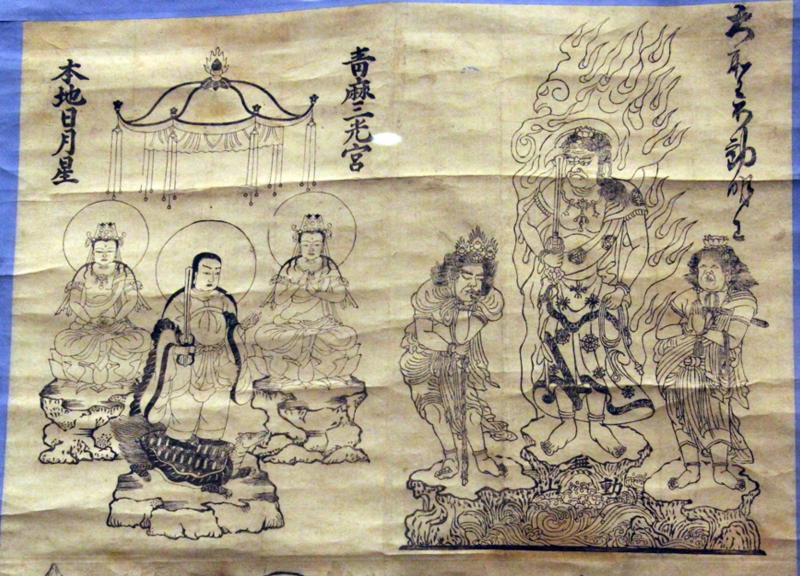 大聖不動明王
青麻三光宮
本地日月星
無動